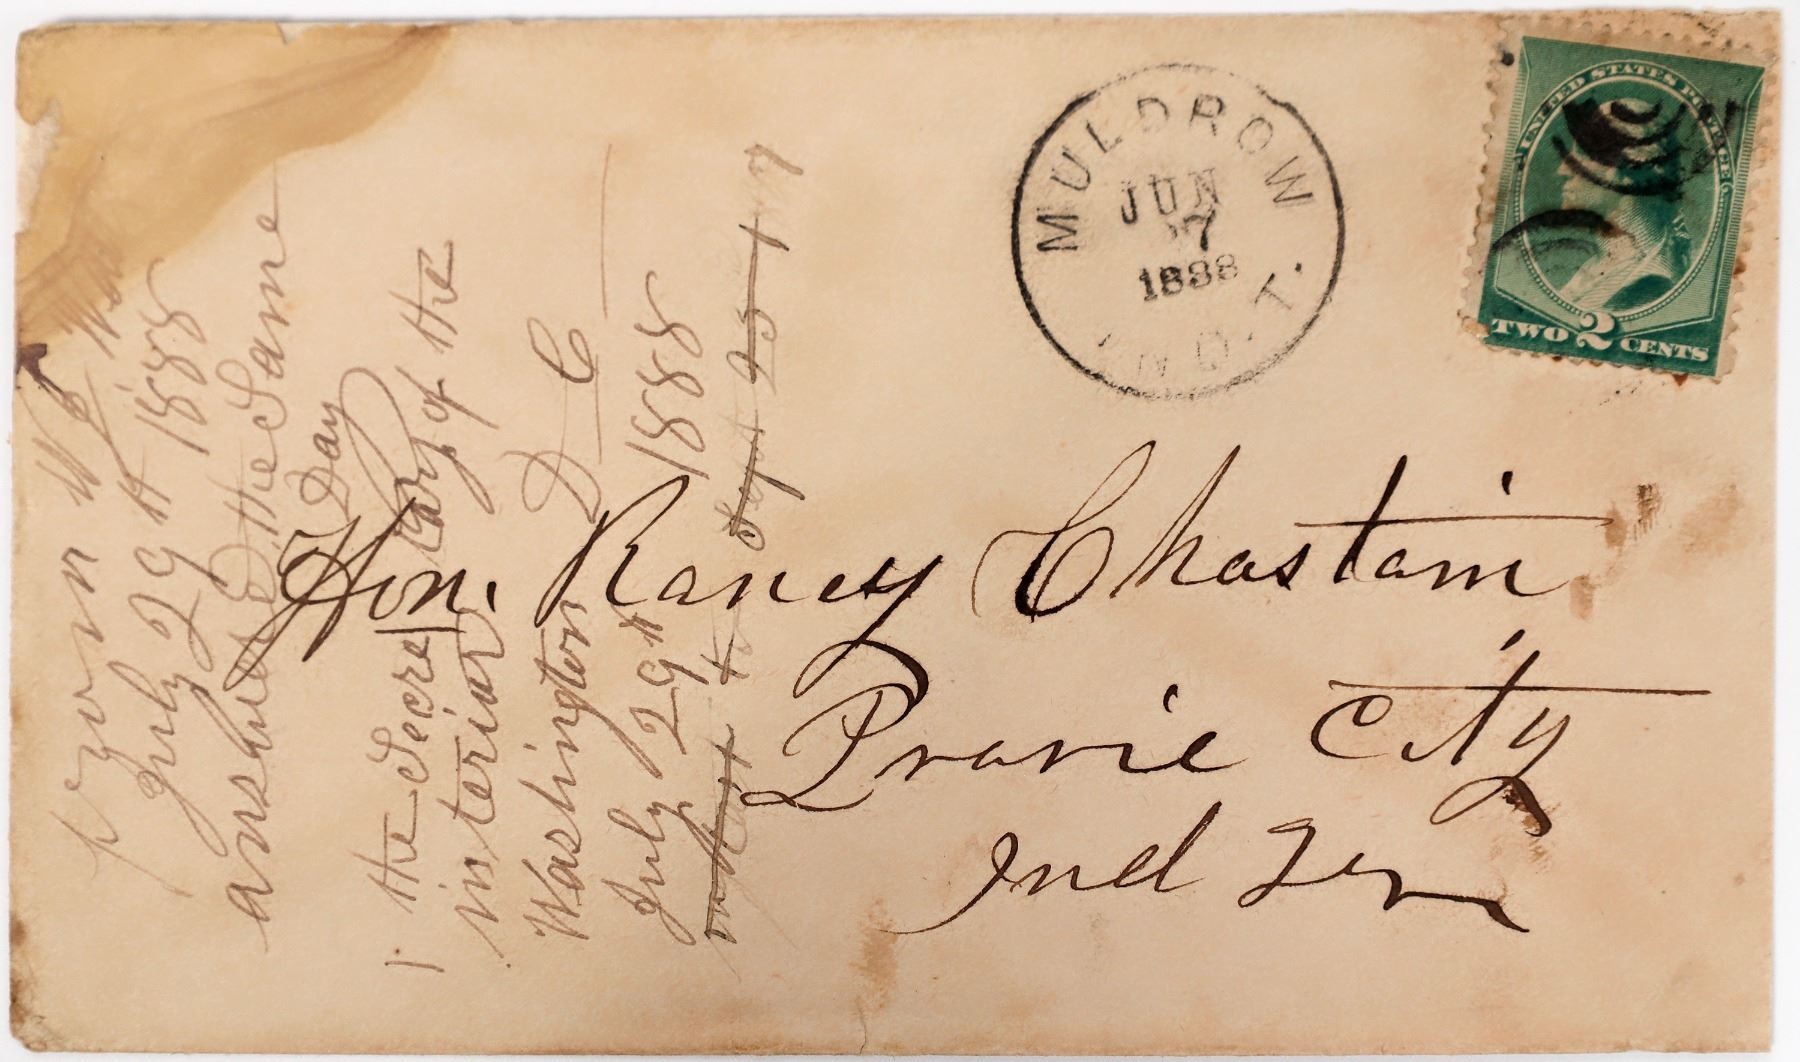 MULDROW
JUN
7
1888
IND. T.
UNITED STATES POSTAGE
TWO 2 CENTS
Hon. Raney Chastain
Pravie City
Ind Ter
from W
July 29th 1888
answered the Same
Day
the Secretary of the
interiar
Washington D C
July 29th 1888